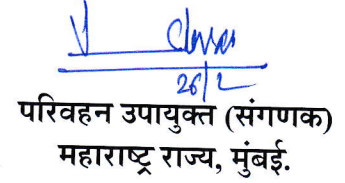 26/2
परिवहन उपायुक्त (संगणक)
महाराष्ट्र राज्य, मुंबई.